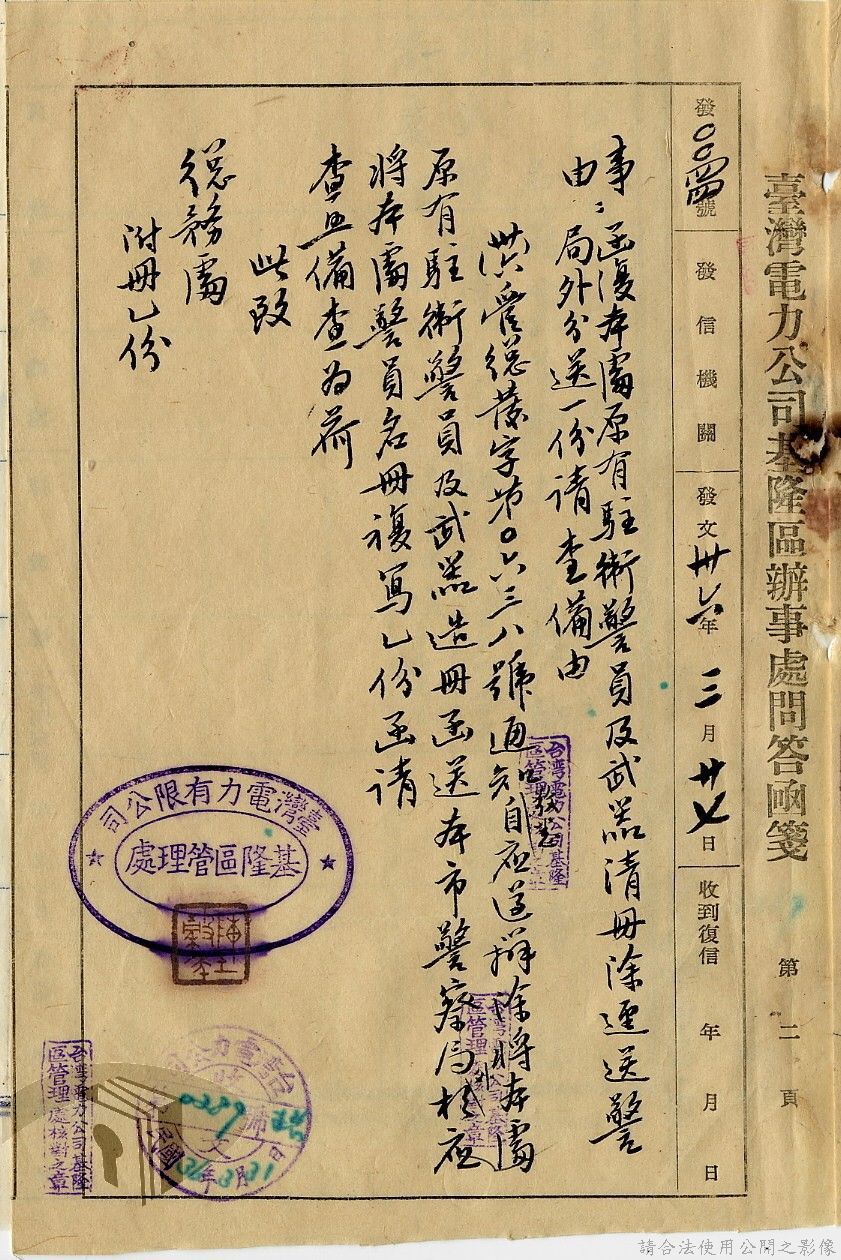 臺灣電力公司基隆區辦事處問答函箋 第二頁
發00四四號 發信機關 發文卅六年三月廿七日 收到復信 年 月 日
事:函復本處原有駐衛警員及武器清冊除逕送警
由:局外分送一份請查備由
管總發字第0六三八號通知自應遵辦除將本處
原有駐衛警員及武器造冊函送本市警察局核
將本處警員名冊複寫乙份函請
查照備查為荷
此致
總務處
附冊乙份
臺灣電力有限公司
基隆區管理處
台灣電力公司基隆
區管理處核對之章
台灣電力公司基隆
區管理
台灣電力公司基隆
區管理
台灣電力公司
收文
0289
請合法使用公開之影像